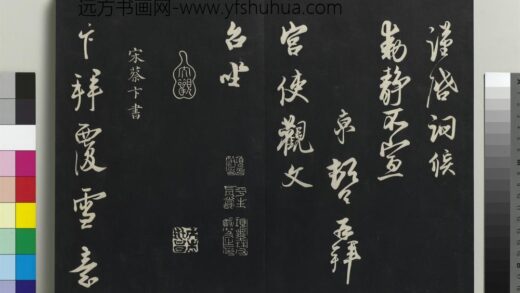 远方书画网-www.yfshuhua.com
謹啓詗候
動静不宣
京頓首再拜
宫使觀文
台坐
宋蔡卞書
卞拜覆雪意